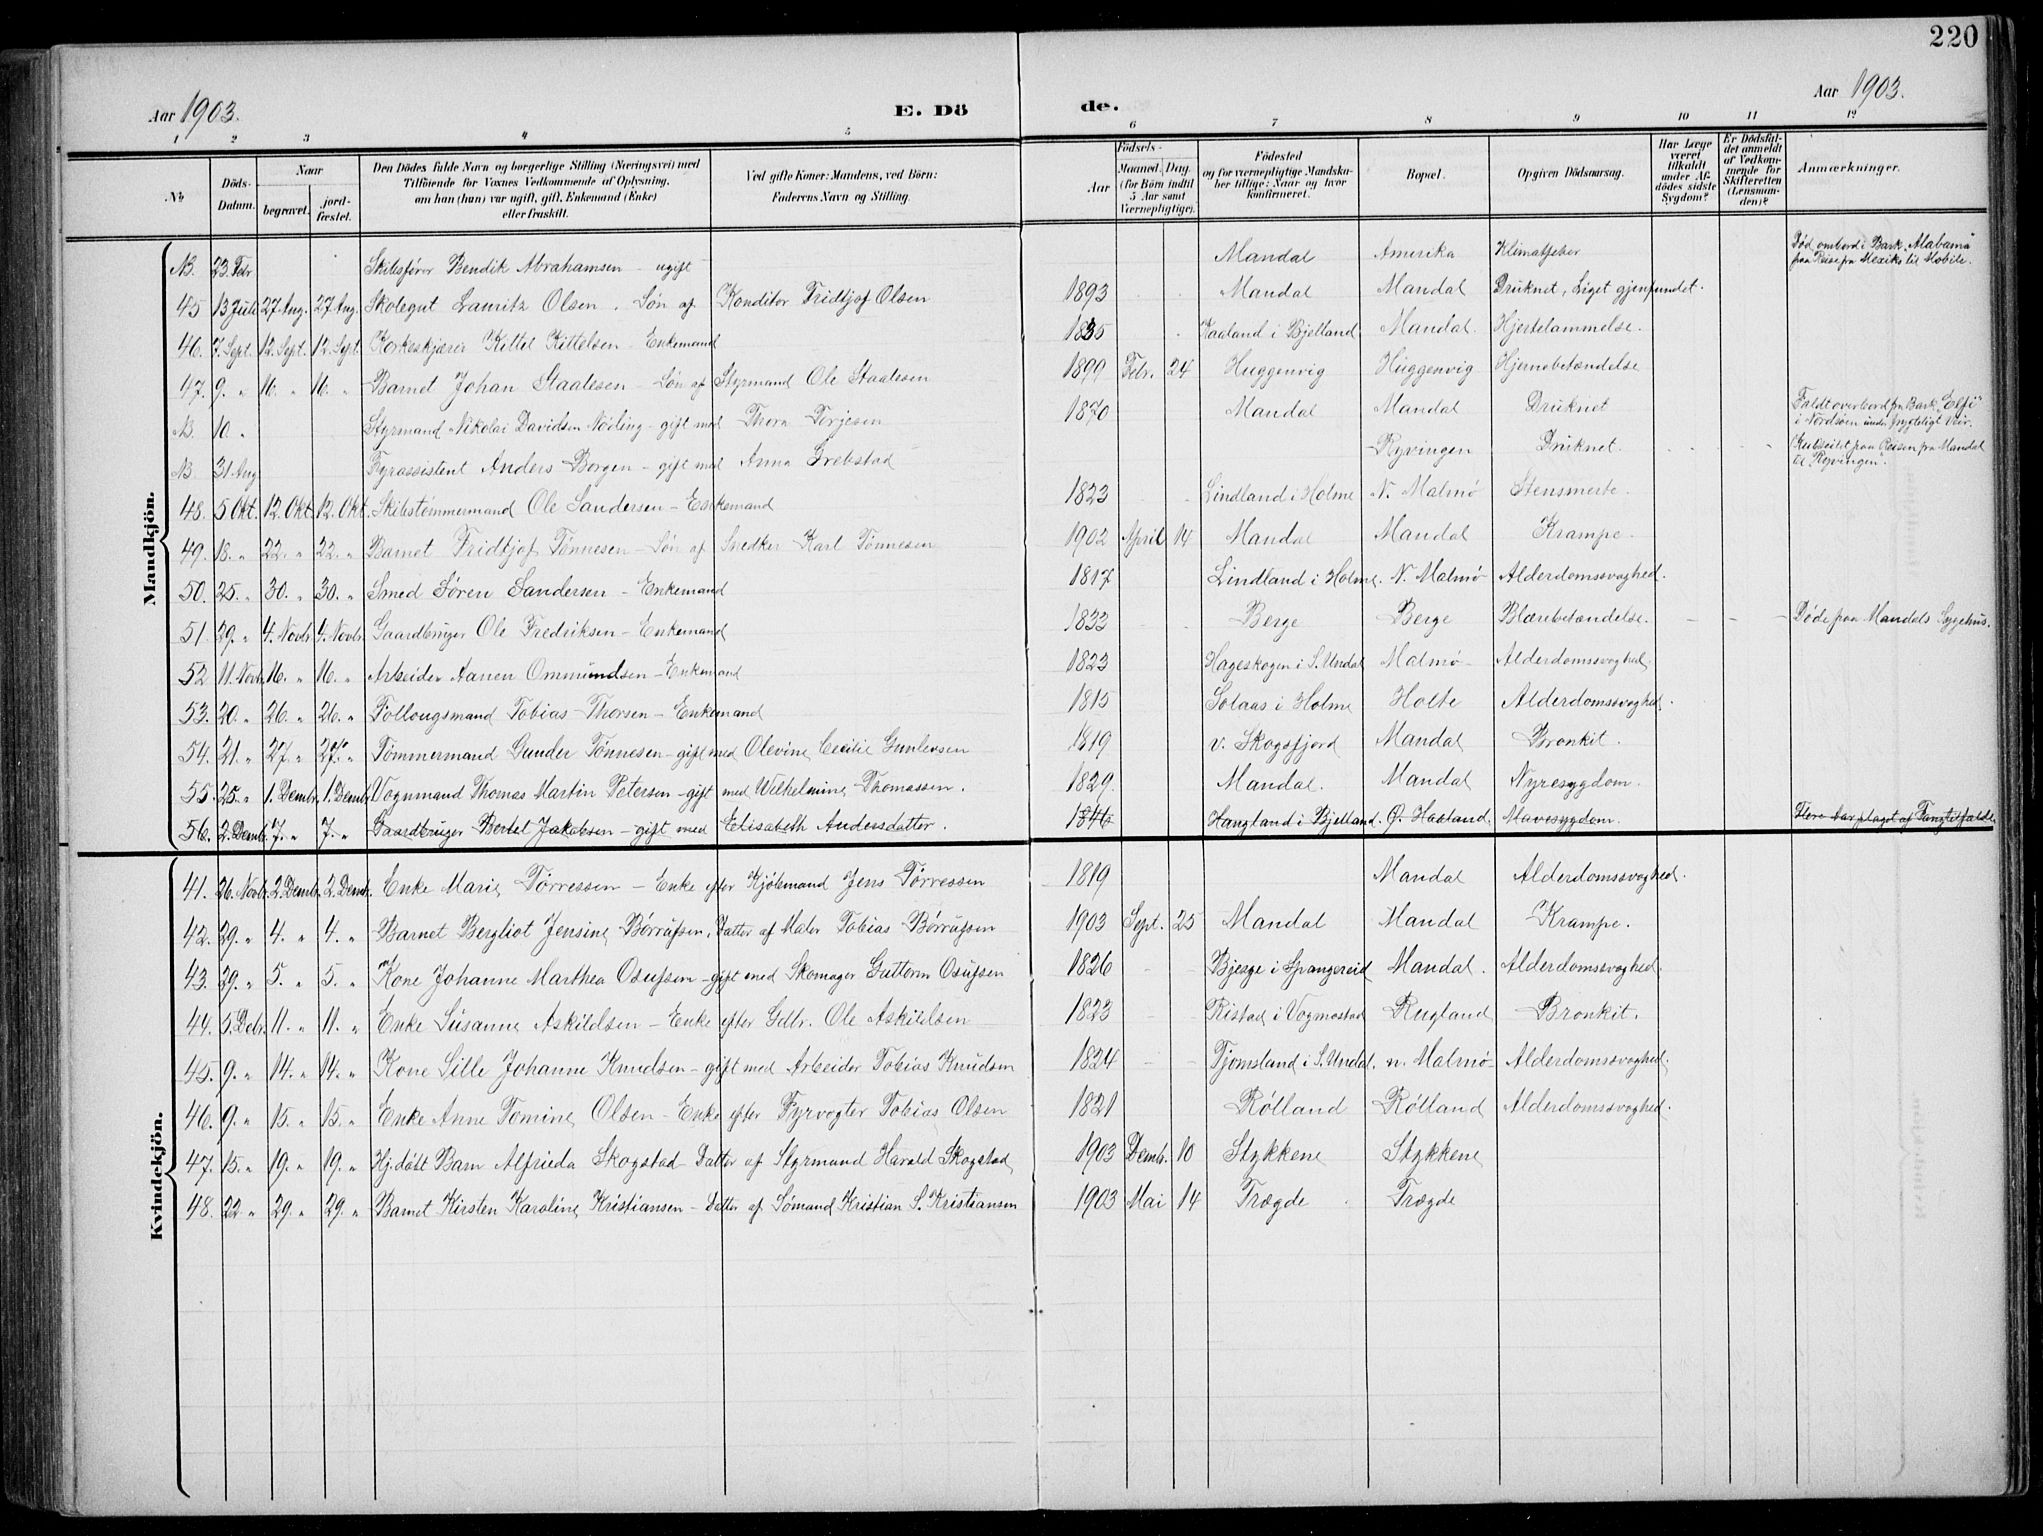 220
Aar 1903. E. Dö de. Aar 1903.
1 2 3 4 5 6 7 8 9 10 11 12
No
Döds-Datum.
Naar begravet. jord-fæstet.
Den Dödes fulde Navn og borgerlige Stilling (Næringsvei) med Tilföiende for Voxnes Vedkommende af Oplysning, om han (hun) var ugift, gift, Enkemand (Enke) eller fraskilt.
Ved gifte Koner: Mandens, ved Börn: Faderens Navn og Stilling.
Födsels-
Aar Maaned. Dag. (for Börn indtil 5 Aar samt Værnepligtige).
Födested og for værnepligtige Mandskaber tillige: Naar og hvor konfirmeret.
Bopæl.
Opgiven Dödsaarsag.
Har Læge været tilkaldt under Afdödes sidste Sygdom?
Er Dödsfaldet anmeldt af Vedkommende for Skifteretten (Lensmanden)?
Anmærkninger.
Mandkjön.
NB. 23. Febr Skibsfører Bendik Abrahamsen - ugift Mandal Amerika Klimatfeber Død ombord i Bark "Alabama" paa Reise fra Mexiko til Mobile.
45 13 Juli 27 Aug. 27 Aug. Skolegut Lauritz Olsen. Søn af Konditor Fridtjof Olsen 1893 Mandal Mandal Druknet, Liget gjenfundet.
46. 7. Sept. 12. Sept. 12. Sept. Korkeskjærer Kittel Kittelsen - Enkemand 1835 Kaaland i Bjelland Mandal. Hjertelammelse.
47. 9. " 16. " 16. " Barnet Johan Staalesen - Søn af Styrmand Ole Staalesen 1899 Febr. 24 Huggenvig Huggenvig Hjernebetændelse
NB. 10. " Styrmand Nikolai Davidsen Nöiling - gift med Thora Torjesen 1870 Mandal Mandal Druknet Faldt overbord fra Bark "Elfi" i Nordsøen under frygteligt Veir.
NB 31 Aug Fyrassistent Anders Borgen - gift med Anna Grebstad Ryvingen Druknet. Kulseilet paa Reisen fra Mandal til "Ryvingen".
48. 5 Okt. 12. Okt. 12. Okt. Skibstømmermand Ole Sandersen - Enkemand 1823 Lindland i Holme N. Malmø Stensmerte.
49. 18. " 22. " 22. " Barnet Fridtjof Tønnesen - Søn af Snedker Karl Tønnesen 1902 April 14 Mandal Mandal Krampe.
50. 25. " 30. " 30. " Smed Søren Sandersen - Enkemand 1817 Lindland i Holme. N. Malmø Alderdomssvaghed.
51. 29. " 4. Novbr. 4. Novbr. Gaardbruger Ole Fredriksen - Enkemand 1833 Berge Berge Blærebetændelse. Døde paa Mandals Sygehus.
52 11. Novbr. 16. " 16. " Arbeider Aanen Ommundsen - Enkemand 1823 Hageskogen i S. Undal Malmø Alderdomssvaghed.
53. 20. " 26. " 26. " Follougsmand Tobias Thorsen - Enkemand 1815 Solaas i Holme Holte Alderdomssvaghed.
54. 21. " 27. " 27. " Tømmermand Gunder Tønnesen - gift med Olevine Cecilie Gunlevsen 1819 v. Skogsfjord Mandal Bronkit.
55. 25. " 1. Dembr. 1. Dembr. Vognmand Thomas Martin Petersen - gift med Wilhelmine Thomassen. 1829. Mandal. Mandal Nyresygdom.
56. 2. Dembr. 7. " 7. " Gaardbruger Bertel Jakobsen - gift med Elisabeth Andersdatter. 1846 Haugland i Bjelland. Ø. Haaland. Mavesygdom.
Kvindekjön.
41. 26. Novbr. 2. Dembr. 2. Dembr. Enke Marie Tørressen - Enke efter Kjølemand Jens Tørressen 1819 Mandal Alderdomssvaghed.
42. 29. " 4. " 4. " Barnet Bergliot Jensine Børrufsen. Datter af Maler Tobias Børrufsen 1903 Sept. 25 Mandal Mandal Krampe.
43. 29. " 5. " 5. " Kone Johanne Marthea Osufsen - gift med Skomager Guttorm Osufsen 1826 Bjerge i Spangereid Mandal. Alderdomssvaghed.
44. 5. Debr. 11. " 11. " Enke Susanne Askildsen - Enke efter Gdbr. Ole Askildsen 1823 Ristad i Vogmostad Rugland Bronkit.
45. 9. " 14. " 14. " Kone Sille Johanne Knudsen - gift med Arbeider Tobias Knudsen 1824 Tjomsland i S. Undal. n. Malmø Alderdomssvaghed.
46. 9. " 15. " 15. " Enke Anne Tomine Olsen - Enke efter Fyrvogter Tobias Olsen 1821 Rølland Rølland Alderdomssvaghed.
47. 15. " 19. " 19. " Hj. døbt Barn Alfrieda Skogstad - Datter af Styrmand Harald Skogstad 1903 Dembr. 10 Stykkene Stykkene
48. 22. " 29. " 29. " Barnet Kirsten Karoline Kristiansen - Datter af Sømand Kristian S. Kristiansen 1903 Mai 14 Trægde Trægde